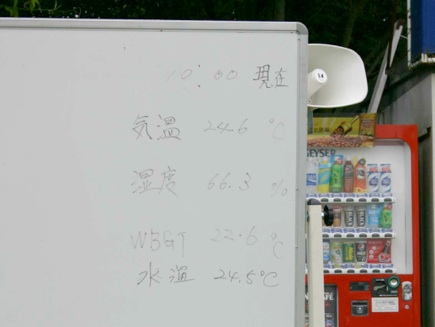 10:00 現在
気温 24.6 ℃
湿度 66.3 %
WBGT 22.6 ℃
水温 24.5℃
GEYSER